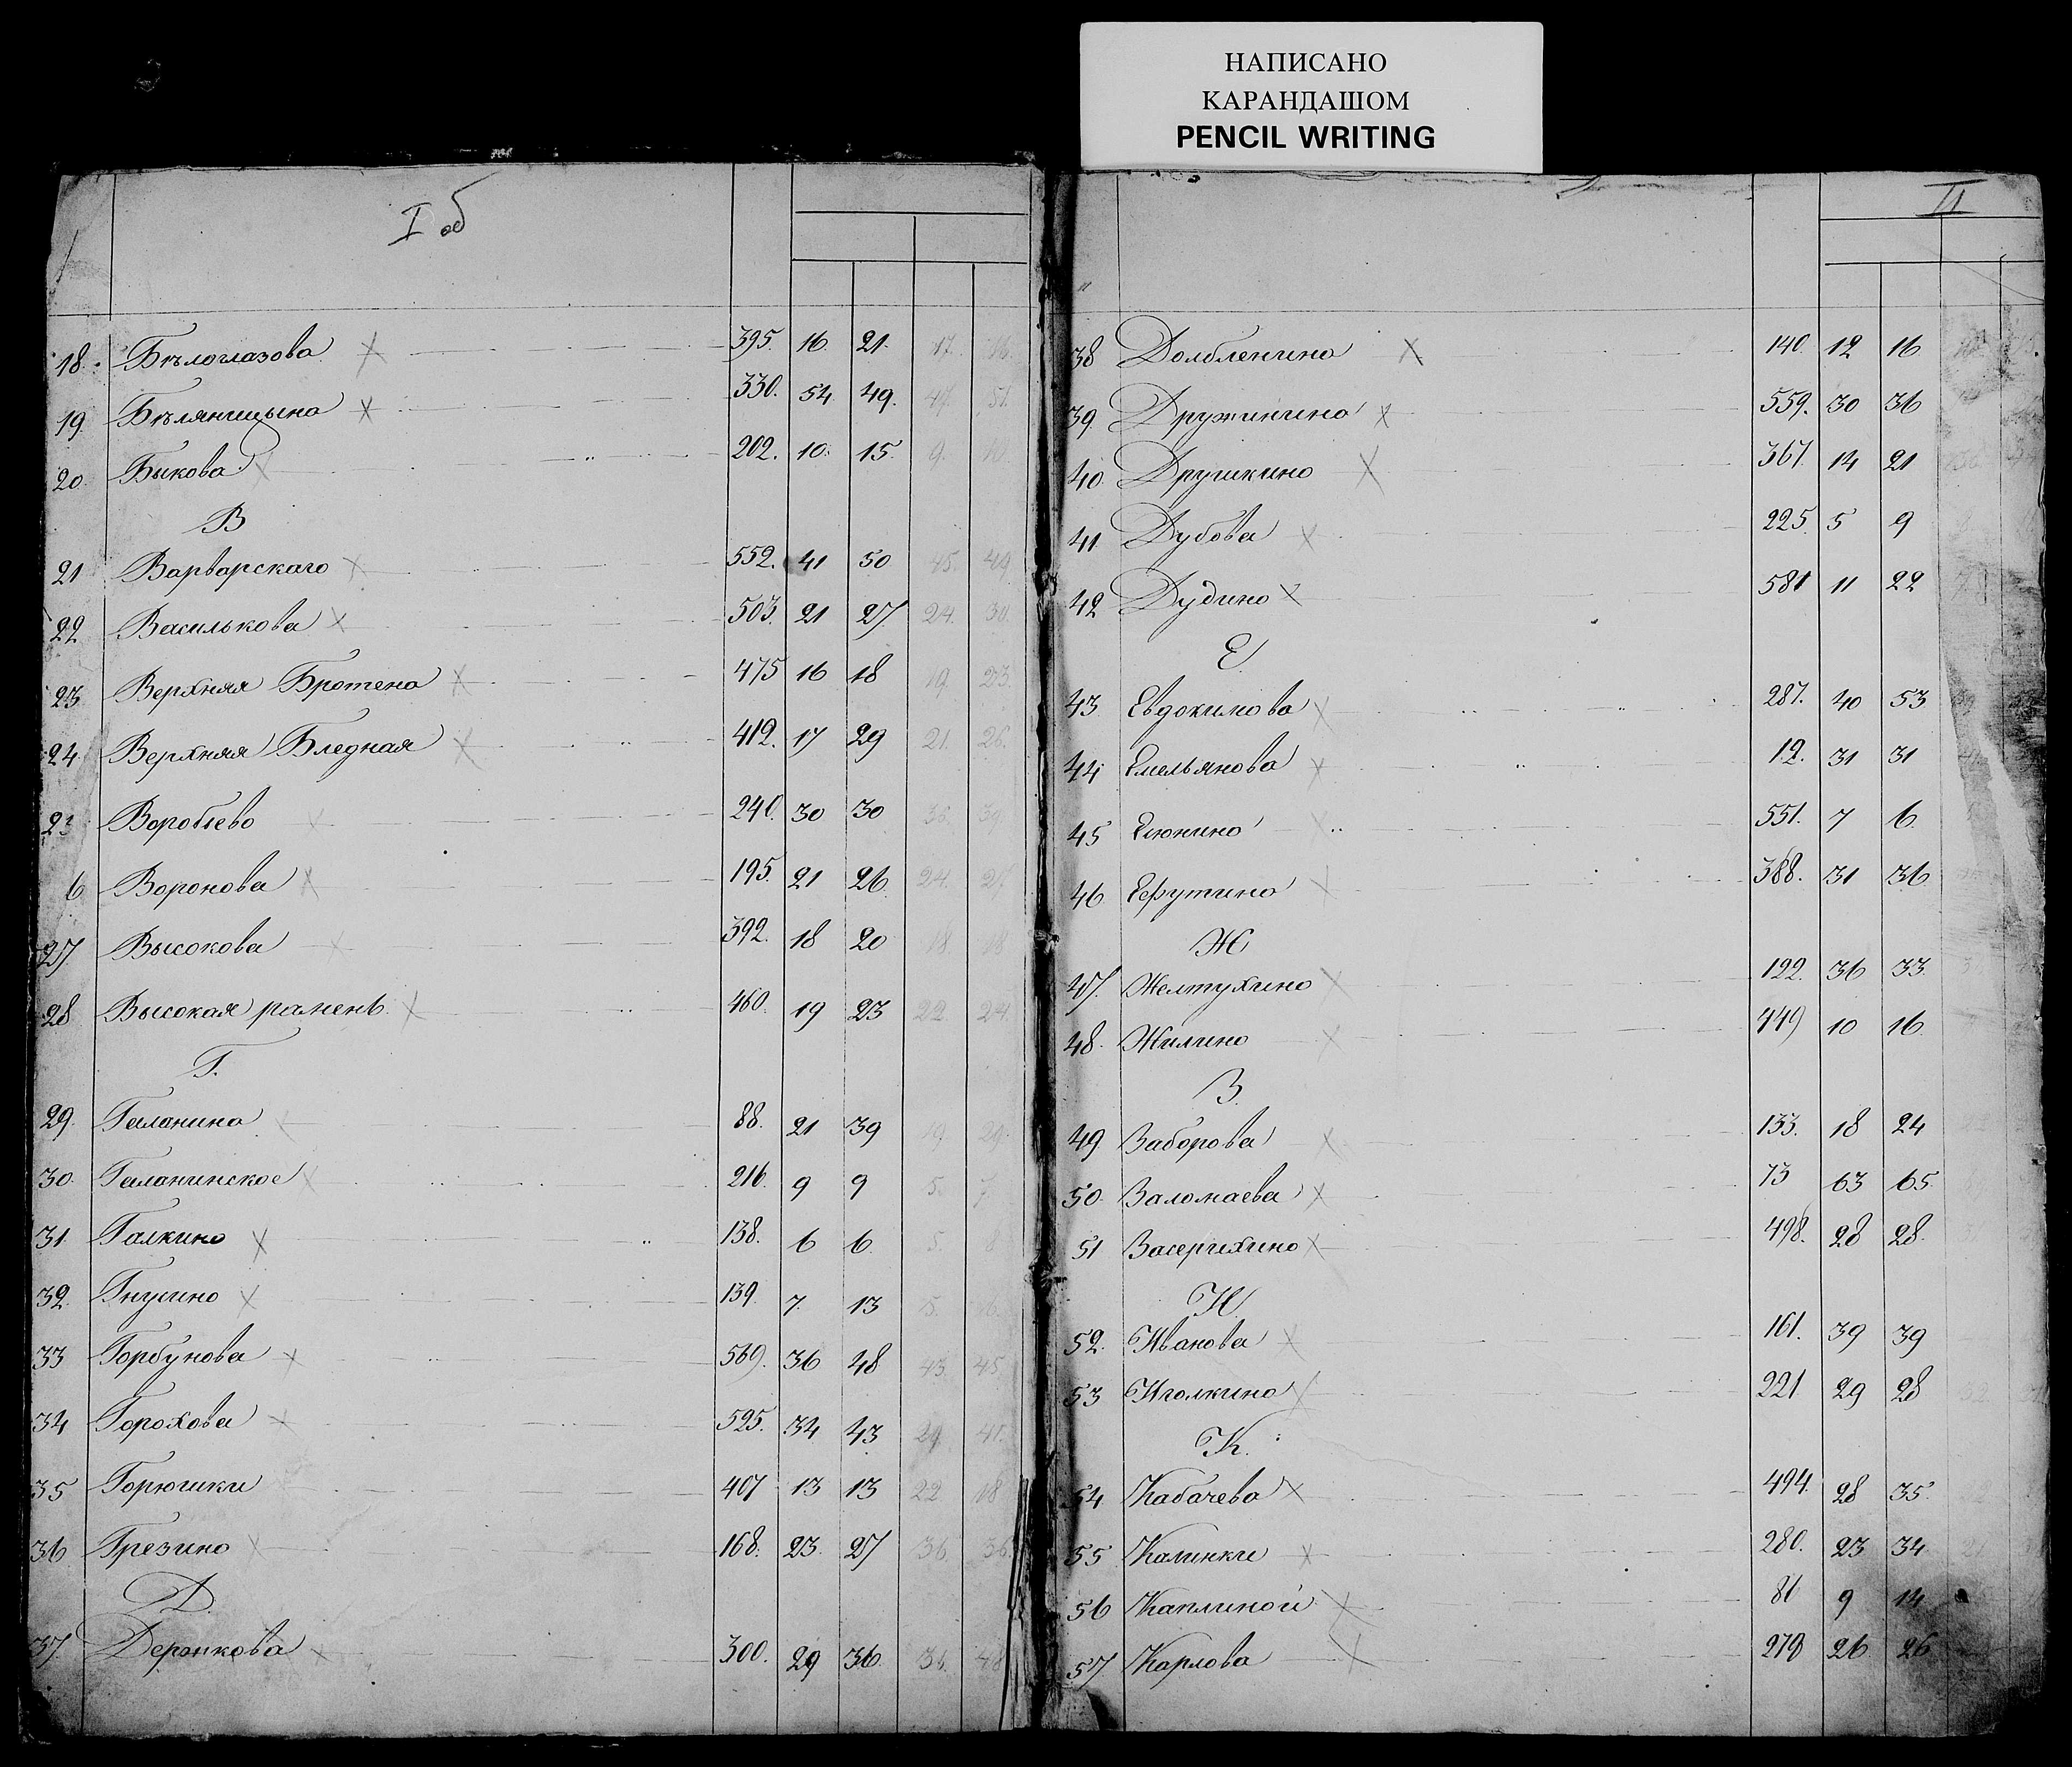 НАПИСАНО
КАРАНДАШОМ
PENCIL WRITING
I об
18. Бѣлоглазова 395. 16 21. 17. 16
19. Бѣляницына 330. 54 49. 47. 51.
20. Быкова 202. 10. 15. 9. 10
В
21 Варварскаго 552. 41 50 45. 49
22 Василькова 503. 21 27 24. 30.
23 Верхняя Бротена 475 16 18 19. 23.
24 Верхняя Бледная 412. 17 29 21. 26.
Воробьево 240. 30 30 36. 39
6 Воронова 195. 21 26 24. 27
27 Высокова 392. 18 20 18 18
28 Высокая рамень 460. 19 23 22. 24
Г.
29. Галанино 88. 21 39 19 29.
30. Галанинское 216. 9 9 5. 7
31 Галкино 138. 6 6. 5. 8
32. Гнусино 139. 7. 13 5.
33 Горбунова 569. 36 48 43 45
34 Горохова 525. 34 43 29. 41.
35 Горюшки 407 13 13 22 18
36 Грезино 168. 23. 27 36 36.
Д.
37. Деренкова 300. 29 36. 36. 48
II
38 Долбленино 140. 12 16
39. Дружинино 559. 30 36
40. Друшкино 367. 14 21
41. Дубова 225. 5 9
42 Дудино 581 11 22
Е
43 Евдокимова 287. 40 53
44 Емельянова 12. 31 31
45 Елюнино 551. 7 6.
46 Ефутино 388. 31 36
Ж
47. Желтухино 122. 36 33
48. Жилино 449 10 16
З.
49 Заборова 133. 18 24
50. Заломаева 73 63 65.
51 Засерихино 498. 28 28.
И
52. Иванова 161. 39 39
53 Иголкино 221 29 28
К.
54 Кабачева 494. 28 35.
55 Калинки 280. 23 34
56 Каплиной 81 9 14
57 Карлова 279 26 26